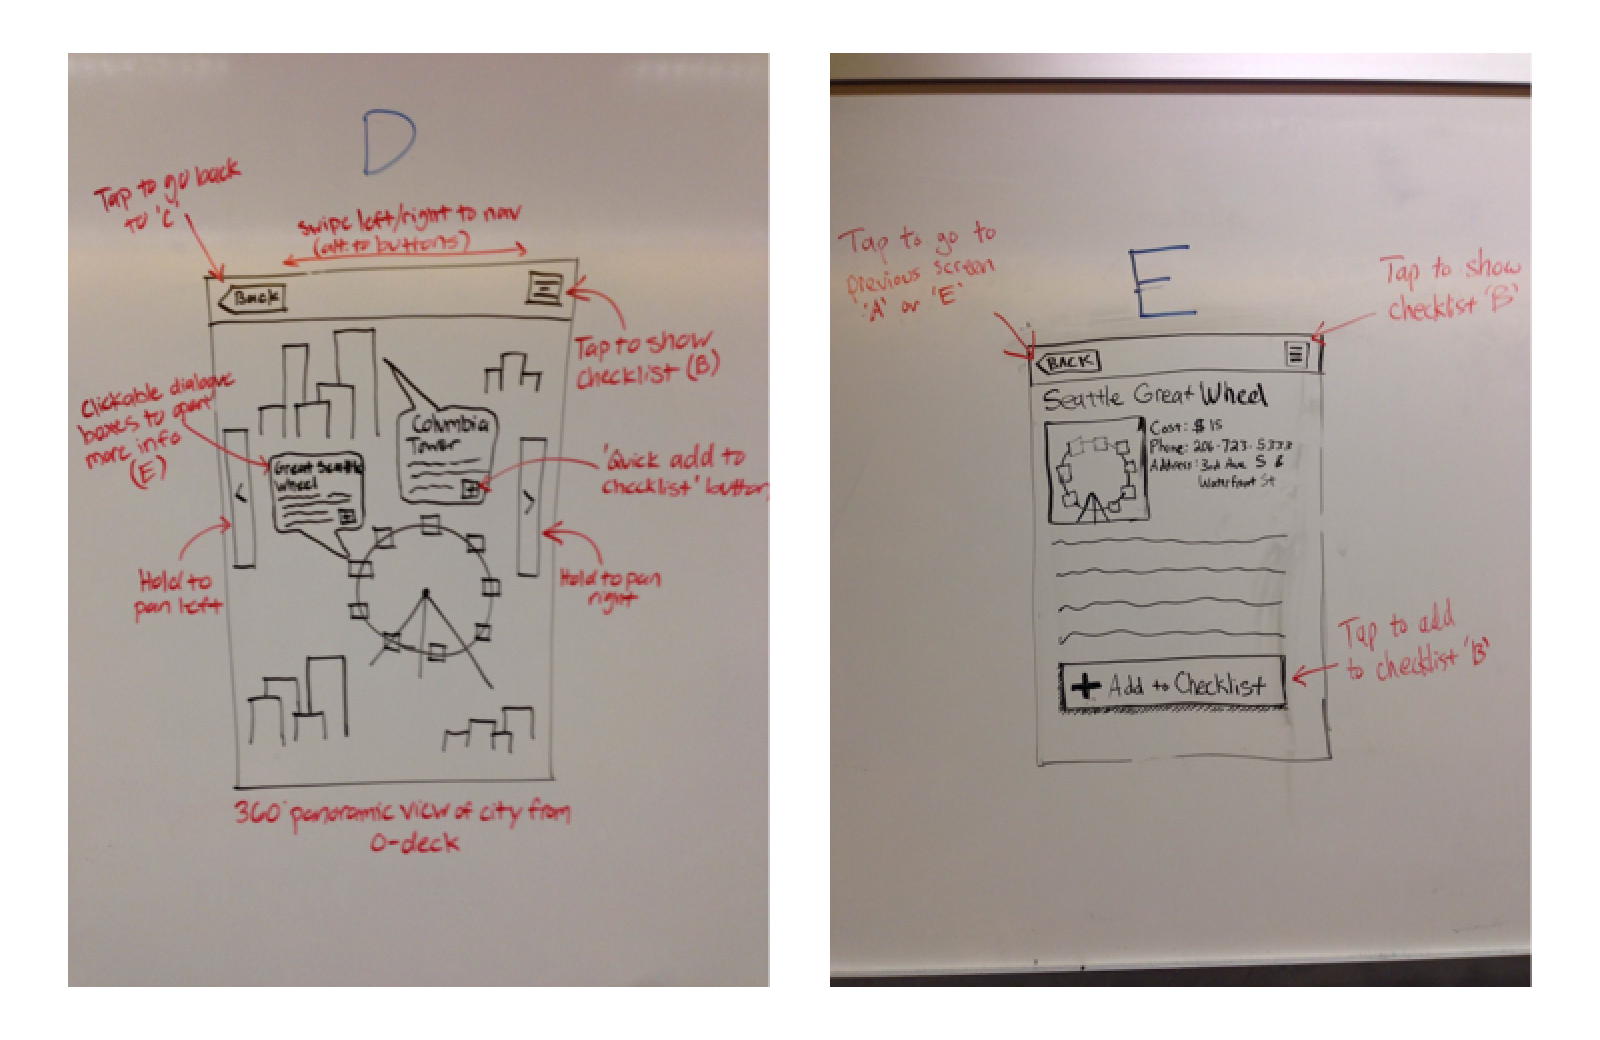 D
Tap to go back
to 'C'
swipe left/right to nav
(alt. to buttons)
Back
Tap to show
checklist (B)
Clickable dialogue
boxes to open
more info
(E)
Columbia
Tower
Great Seattle
Wheel
'Quick add to
checklist' button
<
>
Hold to
pan left
Hold to pan
right
360° panoramic view of city from
O-deck
E
Tap to go to
previous screen
'A' or 'E'
Tap to show
checklist 'B'
BACK
Seattle Great Wheel
Cost: $15
Phone: 206-723-5338
Address: 3rd Ave S &
Waterfront St
Tap to add
to checklist 'B'
+ Add to Checklist